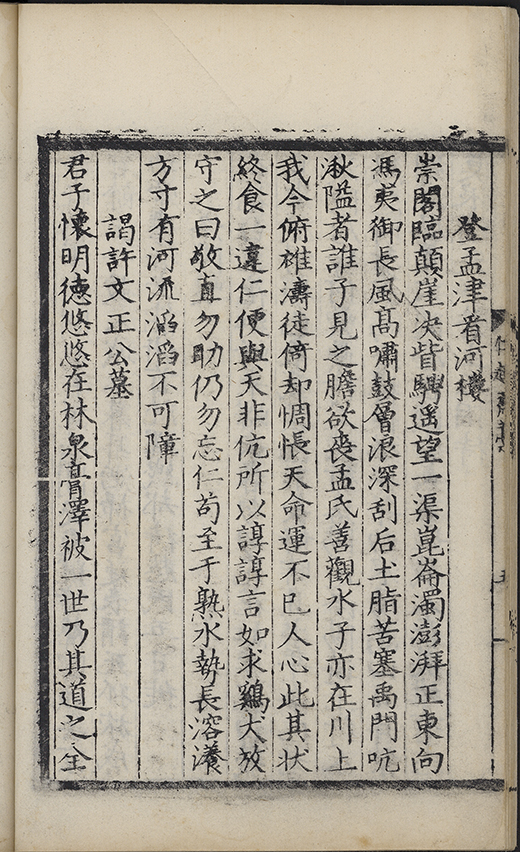 登孟津看河樓
崇閣臨顛崖决眥騁遥望一渠崑崙濁澎湃正東向
馮夷御長風髙嘯鼓層浪深刮后土脂苦塞禹門吭
湫隘者誰子見之膽欲喪孟氏善觀水子亦在川上
我今俯雄濤徒倚却惆悵天命運不已人心此其状
終食一違仁便與天非伉所以諄諄言如求鷄犬放
守之曰敬直勿助仍勿忘仁苟至于熟水勢長溶瀁
方寸有河流滔滔不可障
謁許文正公墓
君子懷明德悠悠在林泉膏澤被一世乃其道之全